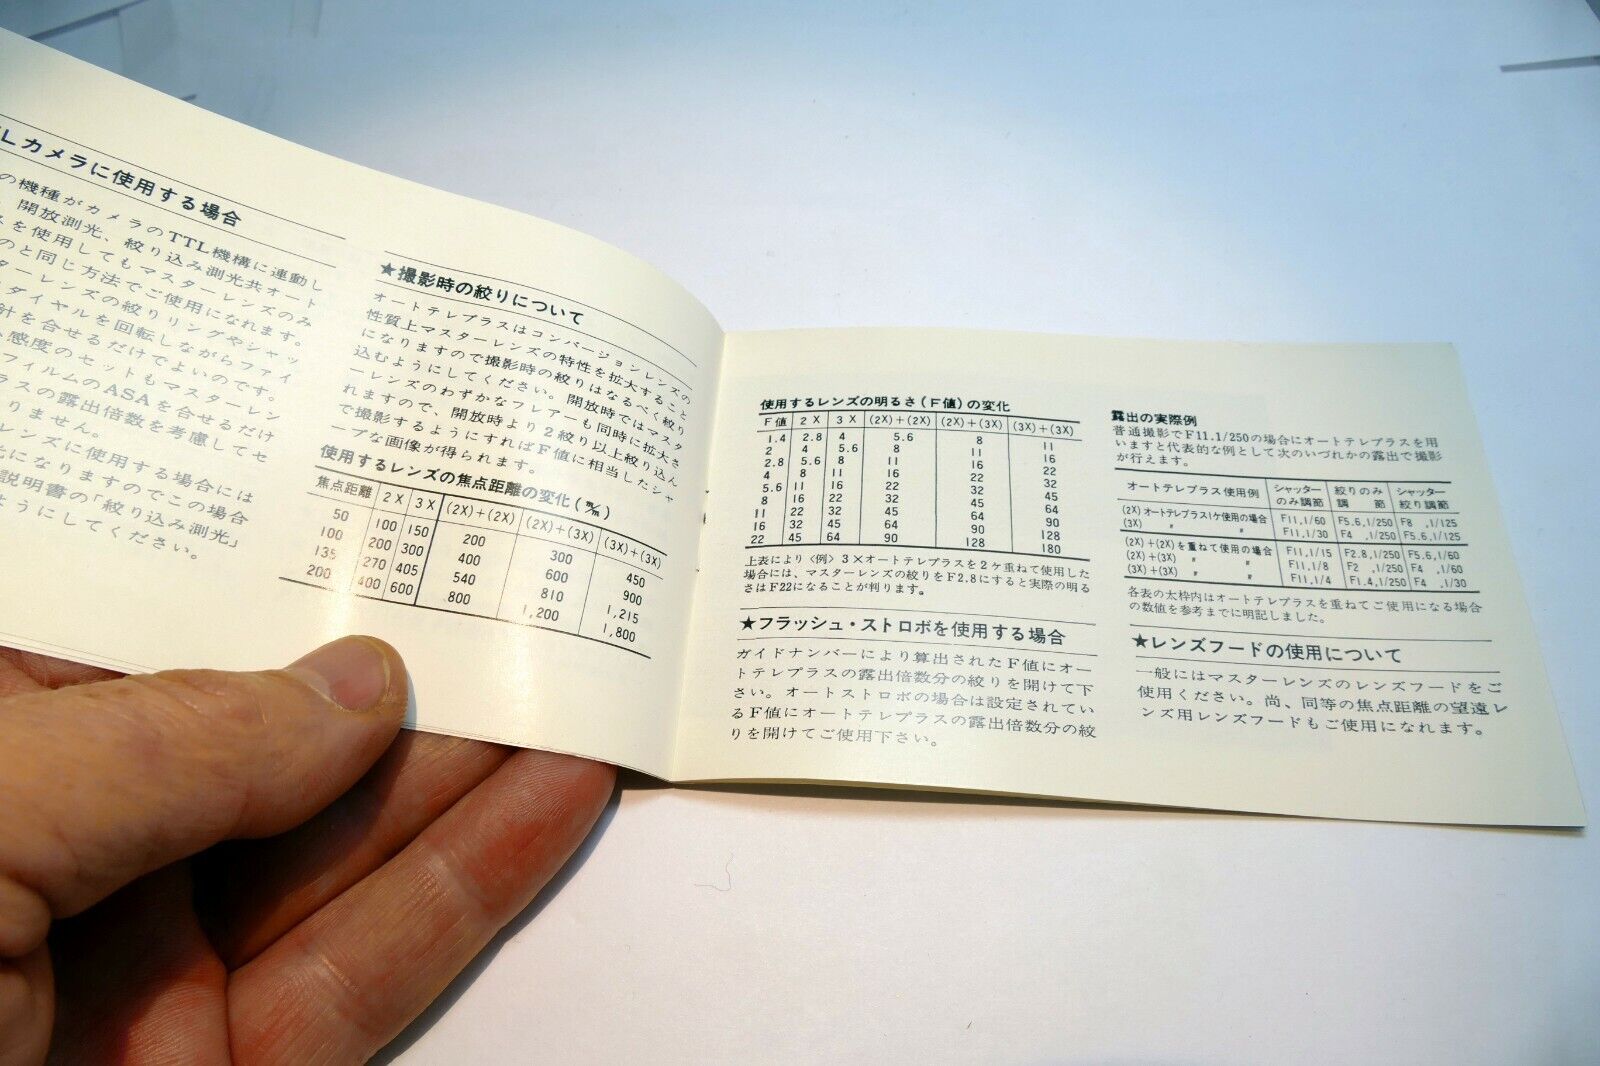 Lカメラに使用する場合
の機種がカメラのTTL機構に連動し
、開放測光、絞り込み測光共オート
スを使用してもマスターレンズのみ
のと同じ方法でご使用になれます。
ターレンズの絞りリングやシャッ
ダイヤルを回転しながらファイ
針を合せるだけでよいのです。
感度のセットもマスターレン
フィルムのASAを合せるだけ
ラスの露出倍数を考慮してセ
りません。
レンズに使用する場合には
光になりますのでこの場合
説明書の「絞り込み測光」
ようにしてください。
★撮影時の絞りについて
オートテレプラスはコンバージョンレンズの
性質上マスターレンズの特性を拡大すること
になりますので撮影時の絞りはなるべく絞り
込むようにしてください。開放時ではマスタ
ーレンズのわずかなフレアーも同時に拡大さ
れますので、開放時より2絞り以上絞り込ん
で撮影するようにすればF値に相当したシャ
ープな画像が得られます。
使用するレンズの焦点距離の変化(m/m)
焦点距離 2X 3X (2X)+(2X) (2X)+(3X) (3X)+(3X)
50 100 150 200 300 450
100 200 300 400 600 900
135 270 405 540 810 1,215
200 400 600 800 1,200 1,800
使用するレンズの明るさ(F値)の変化
F値 2X 3X (2X)+(2X) (2X)+(3X) (3X)+(3X)
1.4 2.8 4 5.6 8 11
2 4 5.6 8 11 16
2.8 5.6 8 11 16 22
4 8 11 16 22 32
5.6 11 16 22 32 45
8 16 22 32 45 64
11 22 32 45 64 90
16 32 45 64 90 128
22 45 64 90 128 180
上表により〈例〉3×オートテレプラスを2ヶ重ねて使用した
場合には、マスターレンズの絞りをF2.8にすると実際の明る
さはF22になることが判ります。
★フラッシュ・ストロボを使用する場合
ガイドナンバーにより算出されたF値にオー
トテレプラスの露出倍数分の絞りを開けて下
さい。オートストロボの場合は設定されてい
るF値にオートテレプラスの露出倍数分の絞
りを開けてご使用下さい。
露出の実際例
普通撮影でF11.1/250の場合にオートテレプラスを用
いますと代表的な例として次のいづれかの露出で撮影
が行えます。
オートテレプラス使用例 シャッターのみ調節 絞りのみ調節 シャッター絞り調節
(2X)オートテレプラス1ケ使用の場合 F11,1/60 F5.6,1/250 F8 ,1/125
(3X) 〃 〃 F11,1/30 F4 ,1/250 F5.6,1/125
(2X)+(2X)を重ねて使用の場合 F11,1/15 F2.8,1/250 F5.6,1/60
(2X)+(3X) 〃 〃 F11,1/8 F2 ,1/250 F4 ,1/60
(3X)+(3X) 〃 〃 F11,1/4 F1.4,1/250 F4 ,1/30
各表の太枠内はオートテレプラスを重ねてご使用になる場合
の数値を参考までに明記しました。
★レンズフードの使用について
一般にはマスターレンズのレンズフードをご
使用ください。尚、同等の焦点距離の望遠レ
ンズ用レンズフードもご使用になれます。